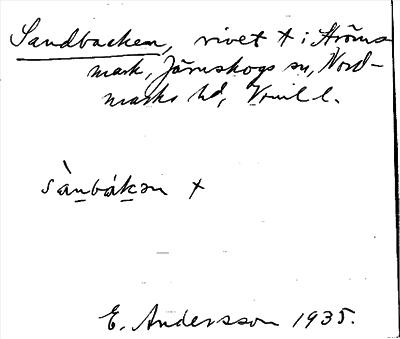 Sandbacken, rivet t i Ströms-
mark, Järnskogs sn, Nord-
marks hd, Vrml l.
sànbákən t
E. Andersson 1935.